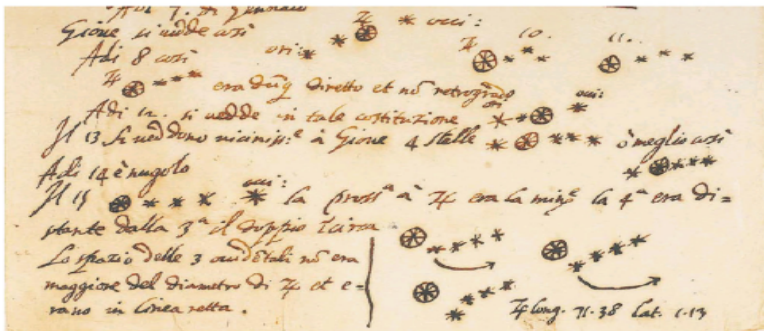 Adi 7. di Gennaio
Gioue si uedde così ori: ♃ occi:
Adi 8 così ♃ 10. 11.
♃ era dunq diretto et nõ retrogrado
Adi 12. si uedde in tale costituzione ori: occi:
Il 13 si ueddono uiciniss:e à Gioue 4 stelle ò meglio così
Adi 14 è nugolo
Il 15 occi: la pross:a à ♃ era la min:e la 4a era di=
stante dalla 3a il doppio Incirca
Lo spazio delle 3 occidẽtali nõ era
maggiore del diametro di ♃ et e=
rano in linea retta.
♃ long. 71.38 lat. 1.13